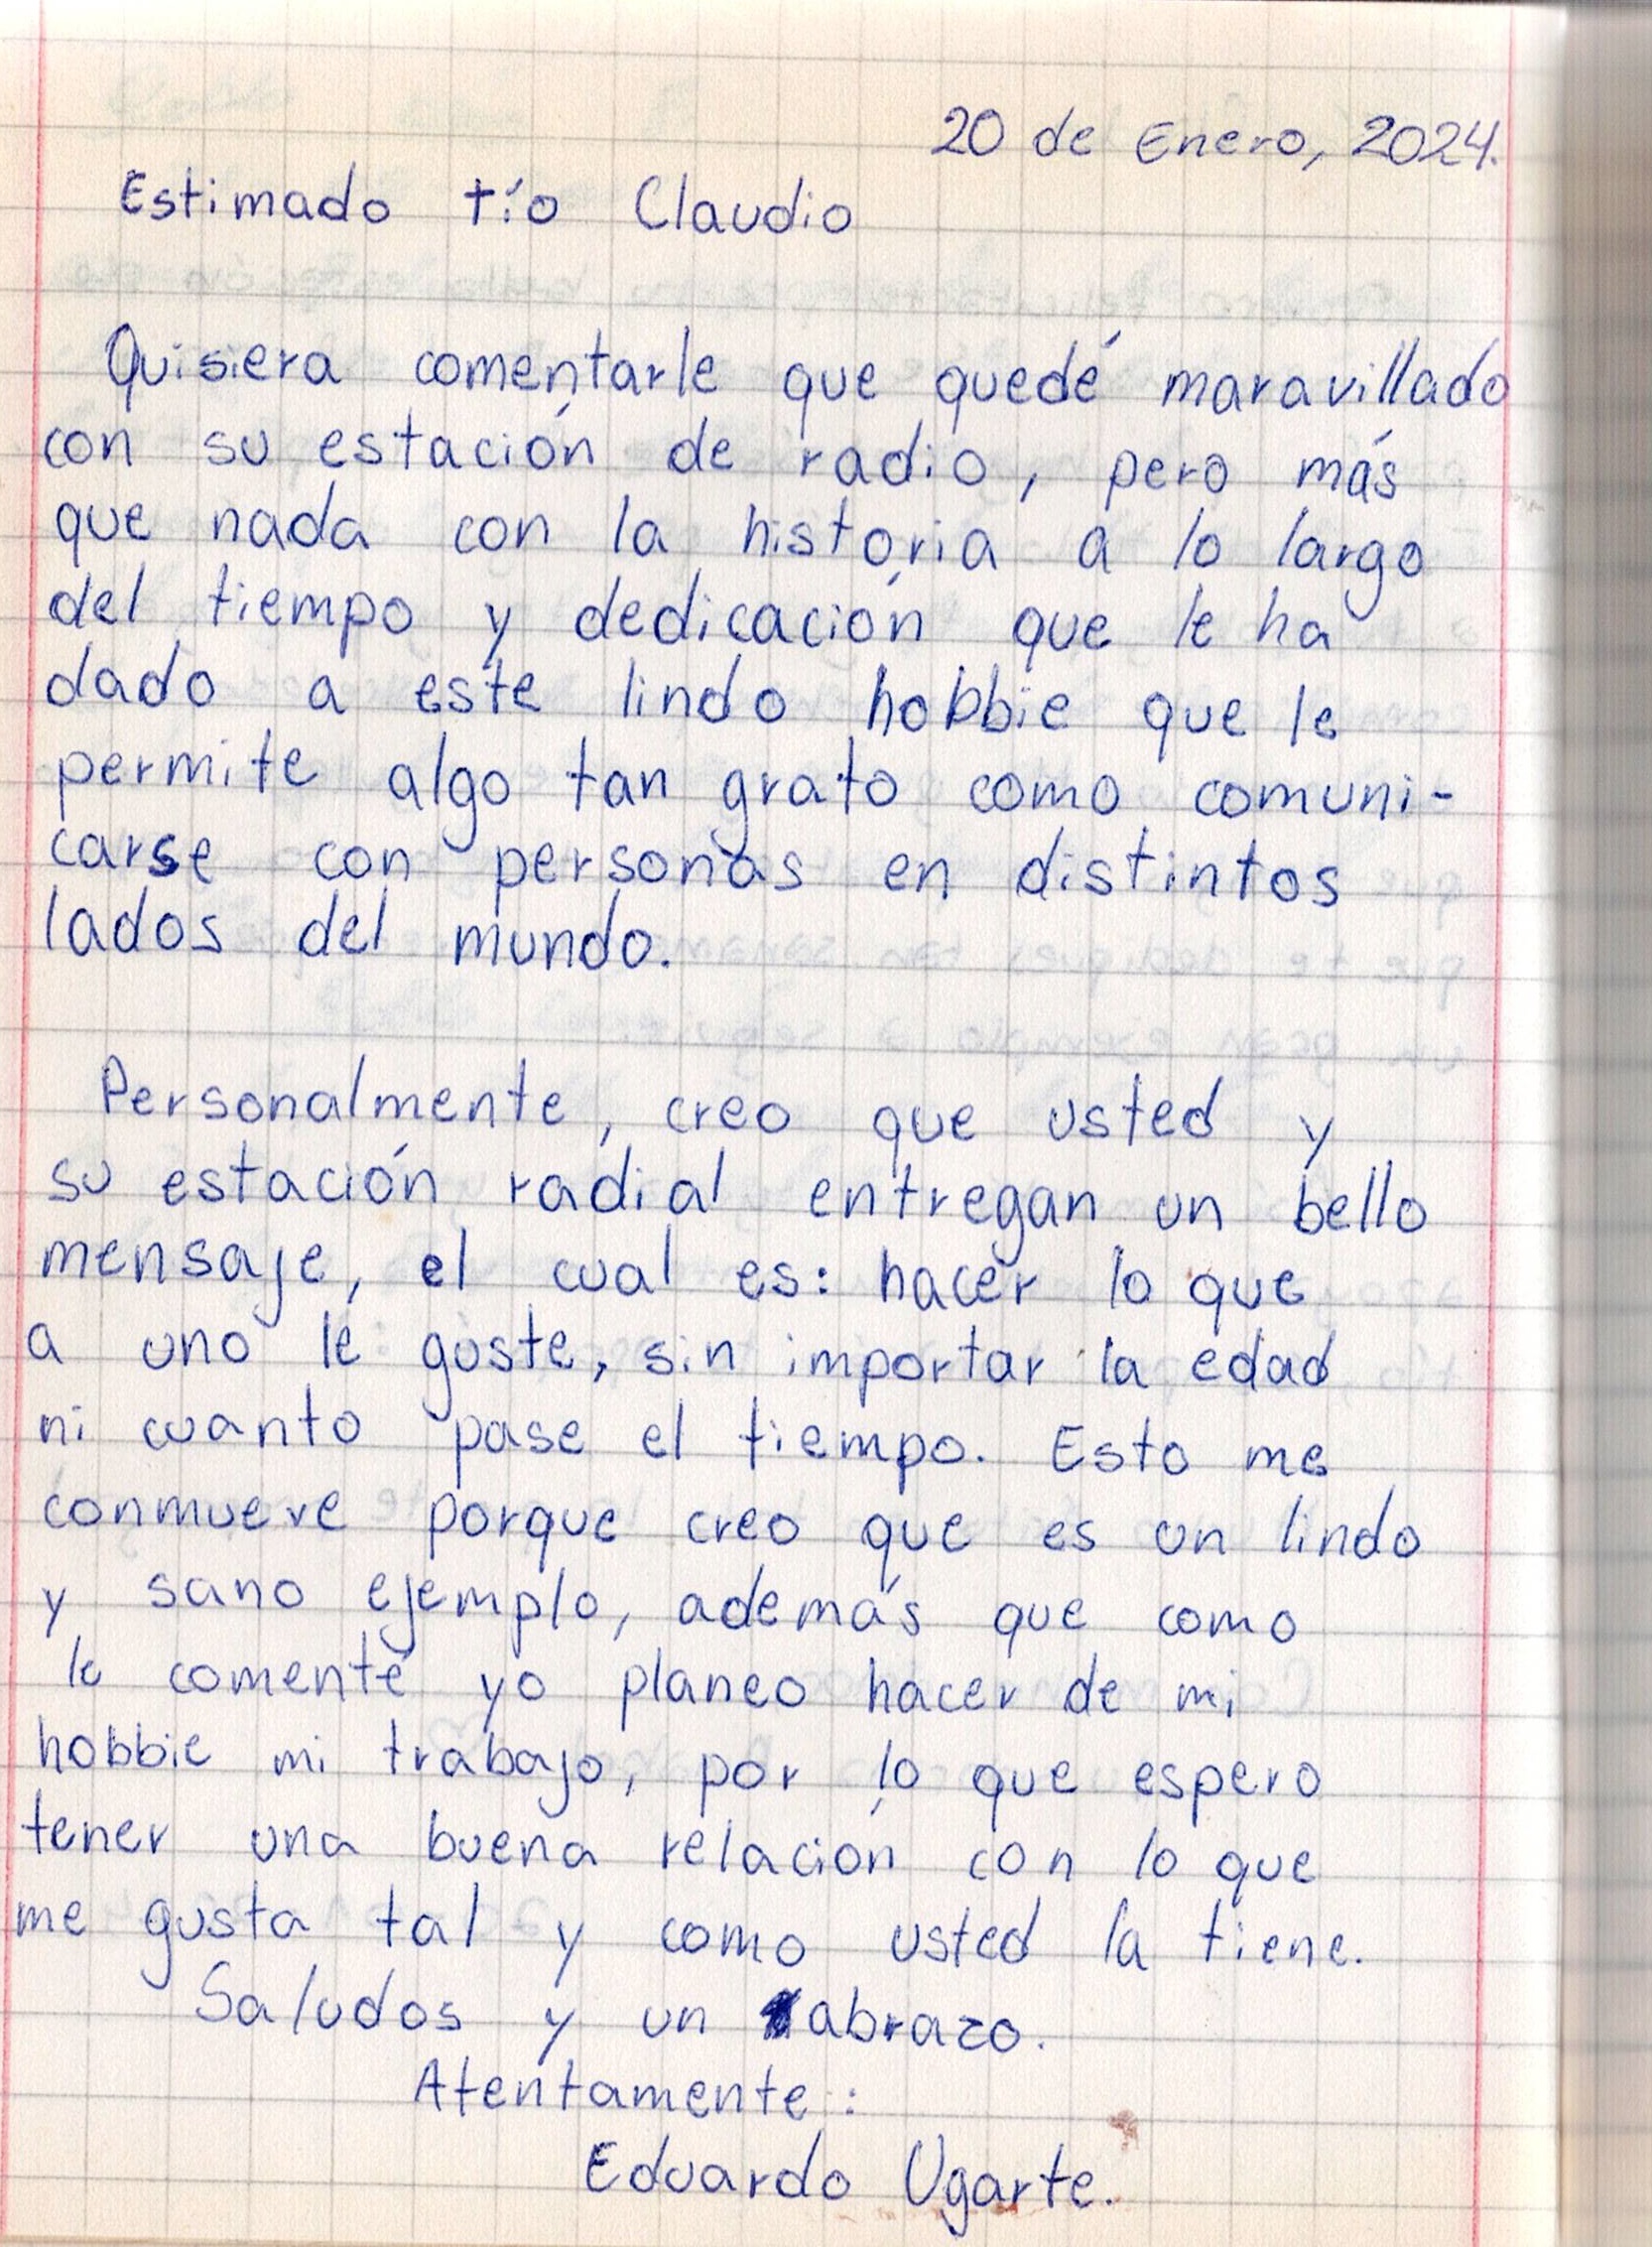 20 de Enero, 2024.
Estimado tío Claudio
Quisiera comentarle que quedé maravillado
con su estación de radio, pero más
que nada con la historia a lo largo
del tiempo y dedicación que le ha
dado a este lindo hobbie que le
permite algo tan grato como comuni-
carse con personas en distintos
lados del mundo.
Personalmente, creo que usted y
su estación radial entregan un bello
mensaje, el cual es: hacer lo que
a uno le guste, sin importar la edad
ni cuanto pase el tiempo. Esto me
conmueve porque creo que es un lindo
y sano ejemplo, además que como
le comenté yo planeo hacer de mi
hobbie mi trabajo, por lo que espero
tener una buena relación con lo que
me gusta tal y como usted la tiene.
Saludos y un abrazo.
Atentamente:
Eduardo Ugarte.